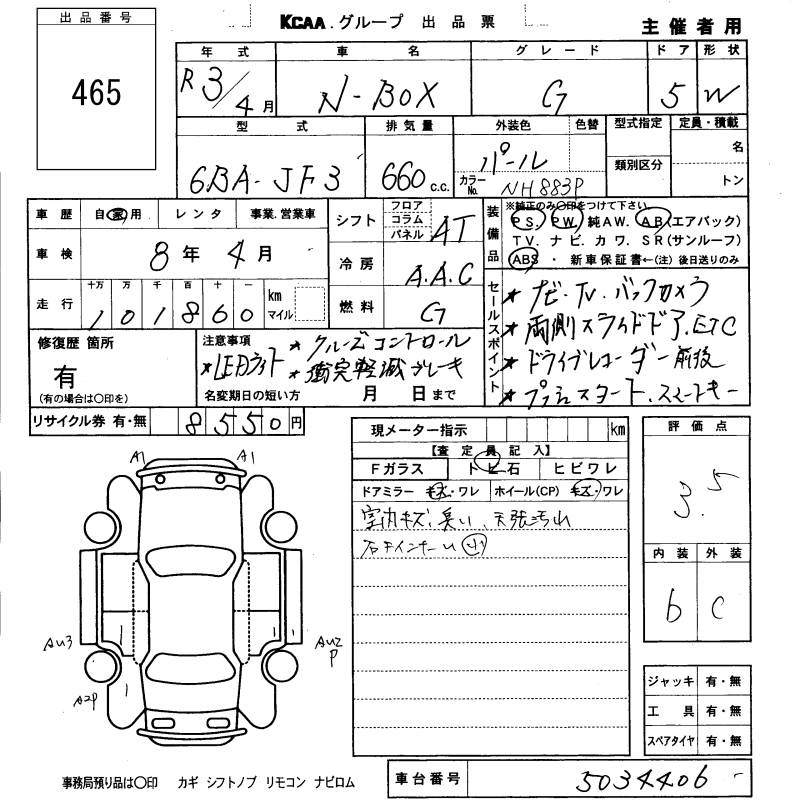 出品番号
465
KCAA.グループ 出品票
主催者用
年式 車名 グレード ドア 形状
R3/4月 N-BOX G 5 W
型式 排気量 外装色 色替 型式指定 定員・積載
6BA-JF3 660 c.c. パール 名
カラーNo. NH883P 類別区分 トン
車歴 自家用 レンタ 事業.営業車
車検 8年4月
走行 十万 万 千 百 十 一 km マイル
101860
シフト フロア コラム パネル AT
冷房 A.A.C
燃料 G
装備品 ※純正のみ○印をつけて下さい。
PS. PW. 純AW. AB(エアバック)
TV. ナビ. カワ. SR(サンルーフ)
ABS・新車保証書←(注)後日送りのみ
セールスポイント
★ナビ・TV.バックカメラ
★両側スライドドア.ETC
★ドライブレコーダー前後
★プッシュスタート.スマートキー
修復歴 箇所
有
(有の場合は○印を)
注意事項
★LEDライト ★クルーズコントロール
★衝突軽減ブレーキ
名変期日の短い方 月 日まで
リサイクル券 有・無 8550円
現メーター指示 km
【査定員記入】
Fガラス トビ石 ヒビワレ
ドアミラー キズ・ワレ ホイール(CP) キズ・ワレ
室内キズ、臭い、天張汚れ
小
評価点
3.5
内装 外装
6 C
A1 A1
AU3
AU2
P
A2P
ジャッキ 有・無
工具 有・無
スペアタイヤ 有・無
事務局預り品は○印 カギ シフトノブ リモコン ナビロム
車台番号 5034406